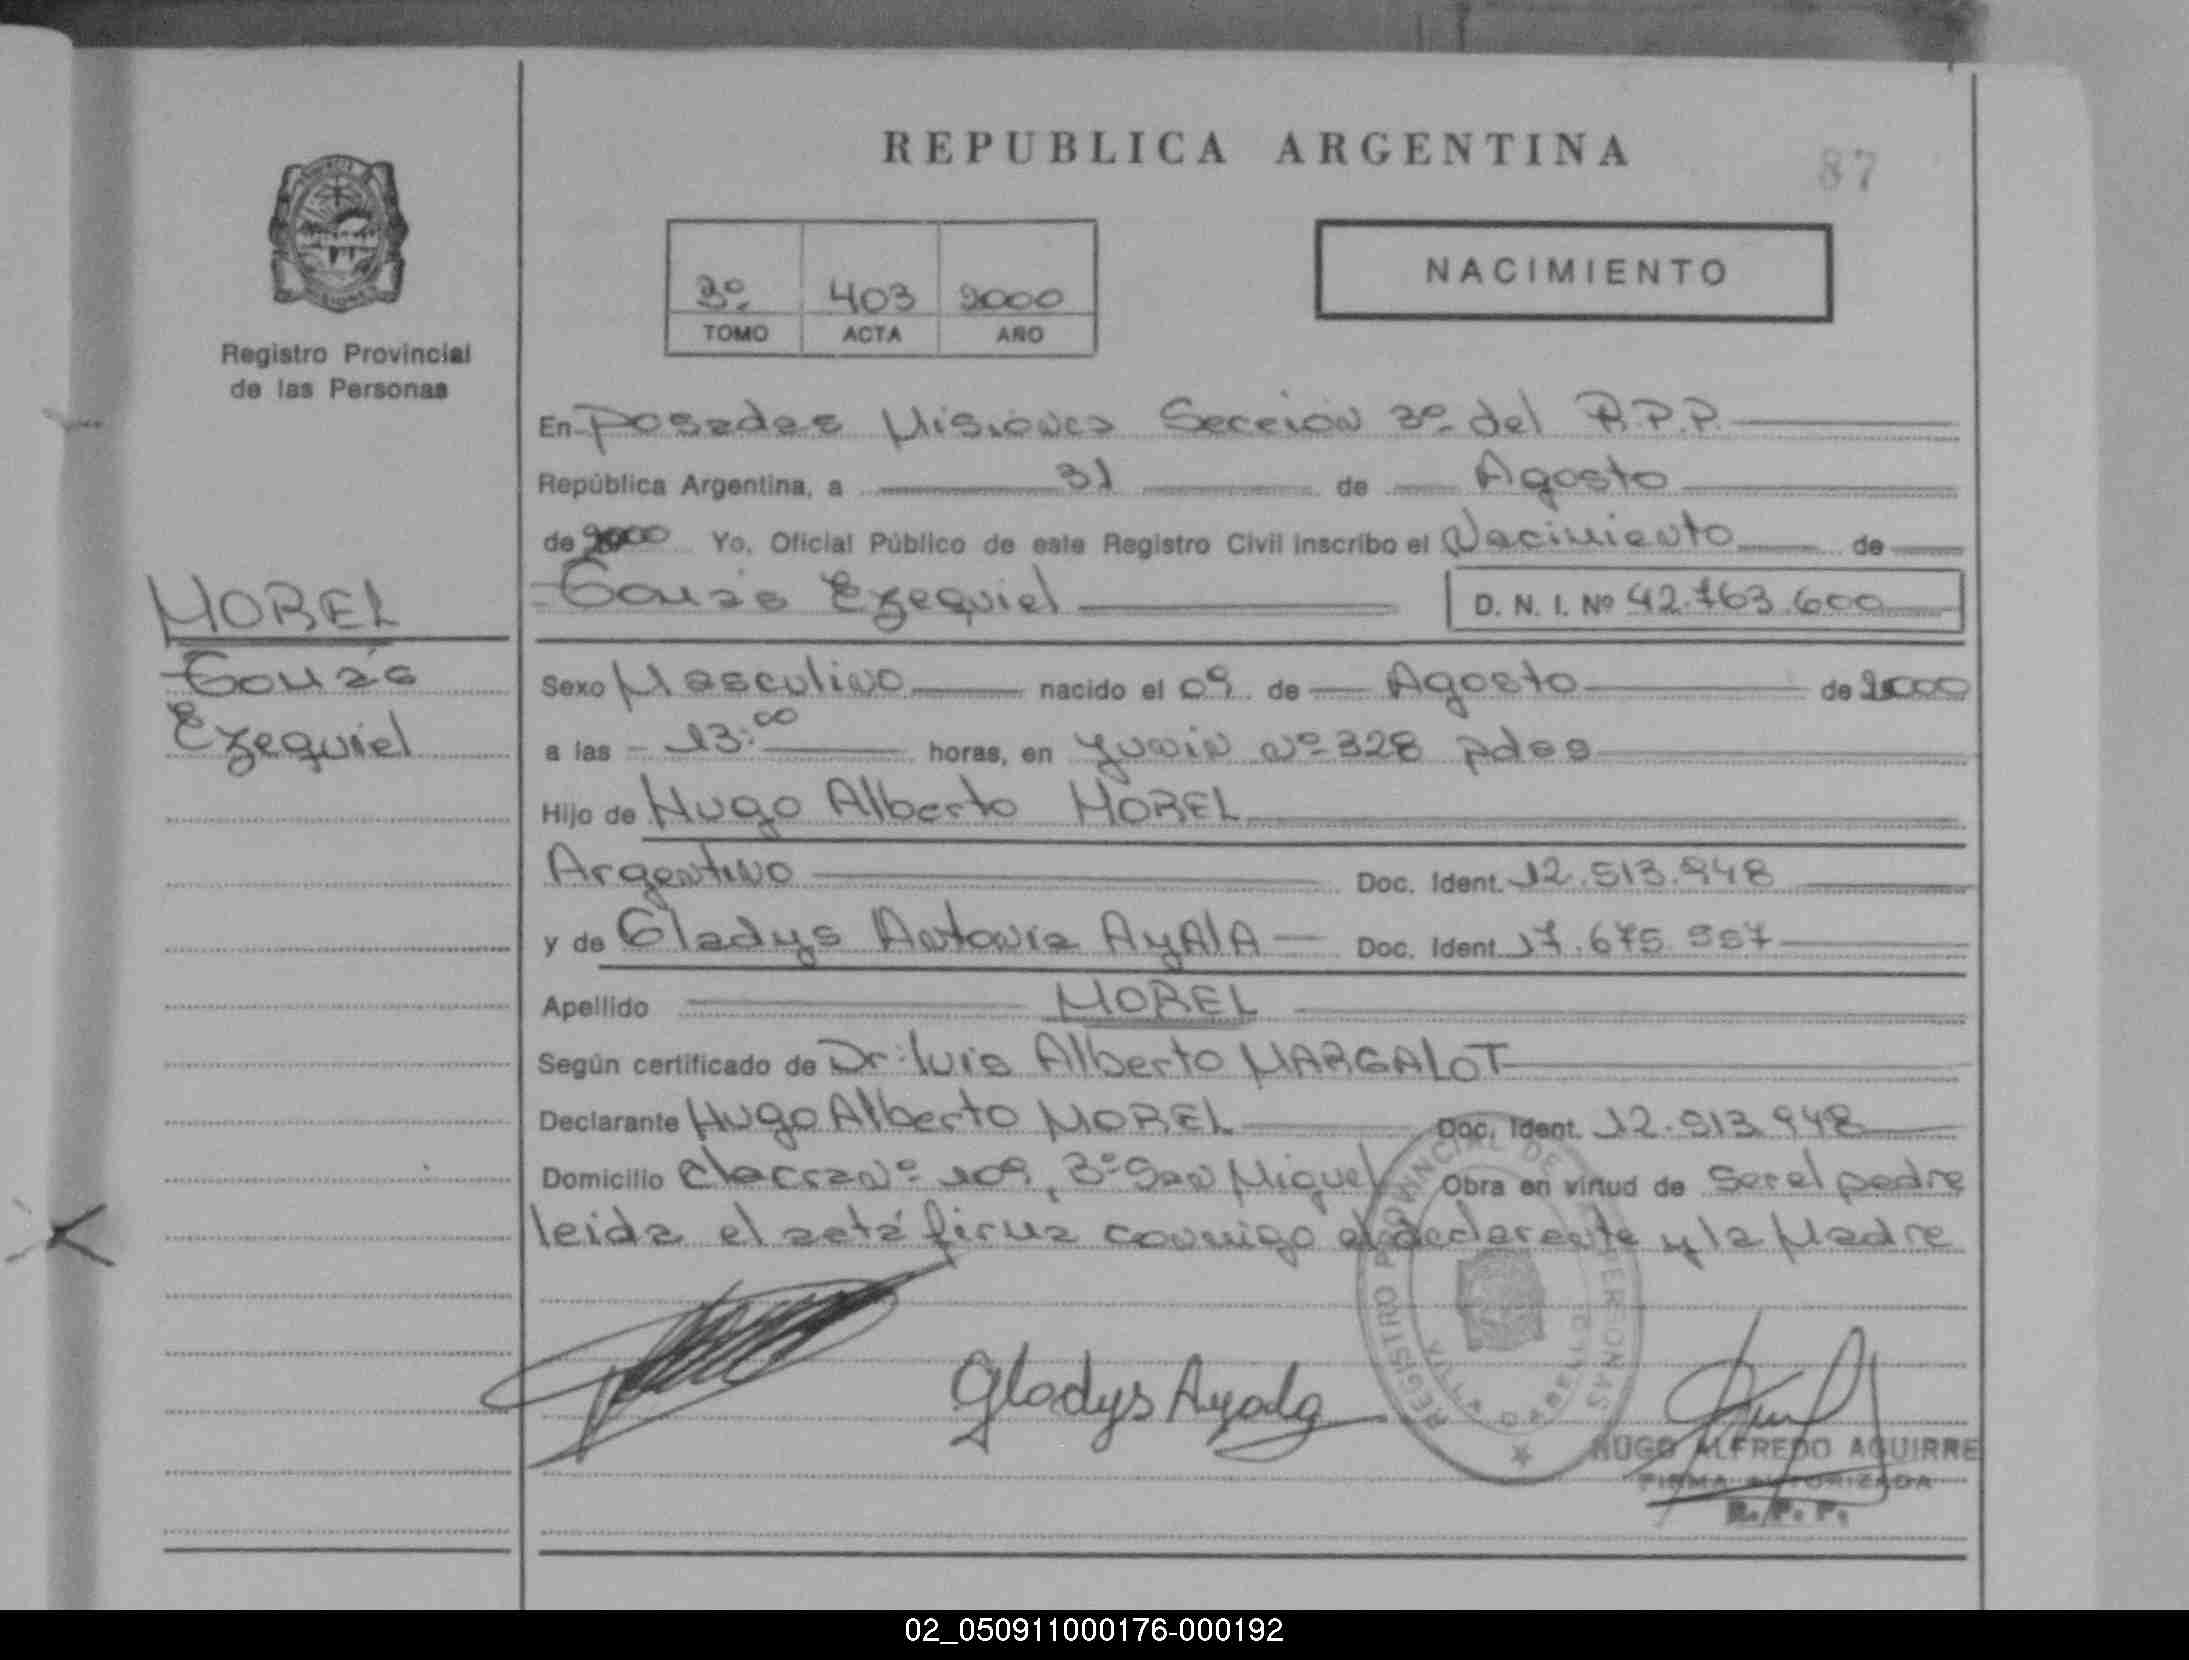 REPUBLICA ARGENTINA
87
3º 403 2000
TOMO ACTA AÑO
NACIMIENTO
Registro Provincial
de las Personas
En Posadas Misiones Sección 3º del R.P.P.
República Argentina, a 31 de Agosto
de 2000 Yo, Oficial Público de este Registro Civil inscribo el Nacimiento de
Tomás Ezequiel D. N. I. Nº 42.763.600
MOREL
Tomás
Ezequiel
Sexo Masculino nacido el 09 de Agosto de 2000
a las 13:00 horas, en Junín nº 328 pdas
Hijo de Hugo Alberto MOREL
Argentino Doc. Ident. 12.513.948
y de Gladys Antonia AyAlA Doc. Ident. 17.675.957
Apellido MOREL
Según certificado de Dr: Luis Alberto MARGALOT
Declarante Hugo Alberto MOREL Doc. Ident. 12.513.948
Domicilio chacra Nº 109, Bº San Miguel Obra en virtud de ser el padre
leida el acta firma conmigo el declarante y la Madre
Gladys Ayala
REGISTRO PROVINCIAL DE LAS PERSONAS
HUGO ALFREDO AGUIRRE
FIRMA AUTORIZADA
R. P. P.
02_050911000176-000192